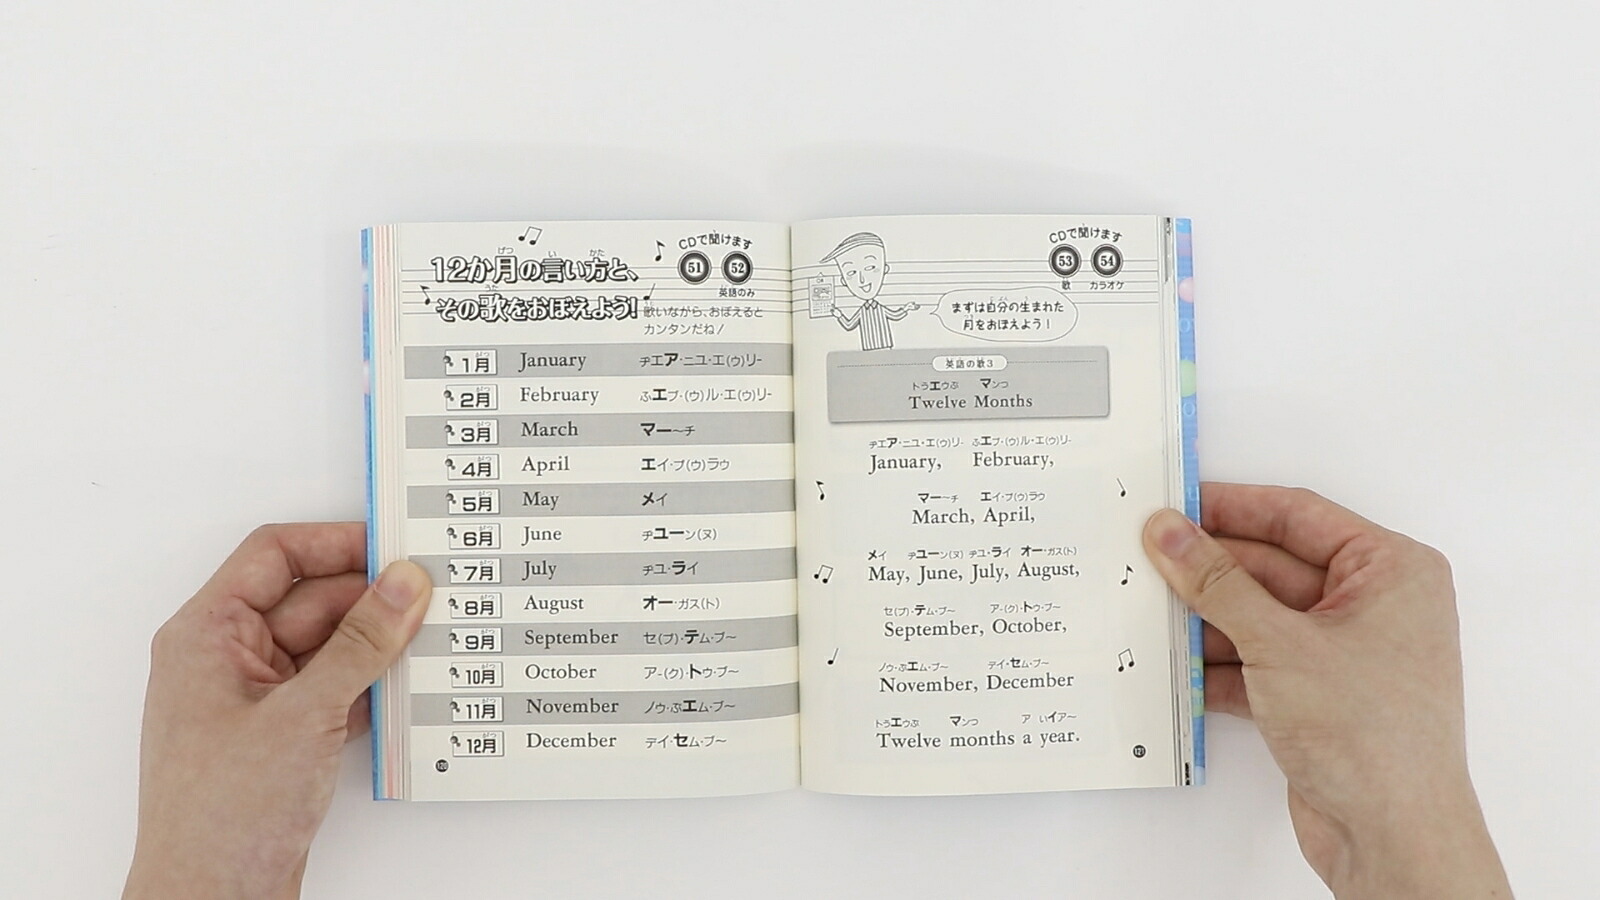 12か月の言い方と、
その歌をおぼえよう!
CDで聞けます
51 52
英語のみ
歌いながら、おぼえると
カンタンだね!
1月 January ヂエア・ニユ・エ(ウ)リ-
2月 February ふエブ・(ウ)ル・エ(ウ)リ-
3月 March マー〜チ
4月 April エイ・プ(ウ)ラウ
5月 May メイ
6月 June ヂユーン(ヌ)
7月 July ヂユ・ライ
8月 August オー・ガス(ト)
9月 September セ(プ)・テム・ブ〜
10月 October ア-(ク)・トウ・ブ〜
11月 November ノウ・ぶエム・ブ〜
12月 December デイ・セム・ブ〜
120
CDで聞けます
53 54
歌 カラオケ
まずは自分の生まれた
月をおぼえよう!
英語の歌3
トうエウぶ マンつ
Twelve Months
ヂエア・ニユ・エ(ウ)リ- ふエブ・(ウ)ル・エ(ウ)リ-
January, February,
マー〜チ エイ・プ(ウ)ラウ
March, April,
メイ ヂユーン(ヌ) ヂユ・ライ オー・ガス(ト)
May, June, July, August,
セ(プ)・テム・ブ〜 ア-(ク)・トウ・ブ〜
September, October,
ノウ・ぶエム・ブ〜 デイ・セム・ブ〜
November, December
トうエウぶ マンつ ア いイア〜
Twelve months a year.
121